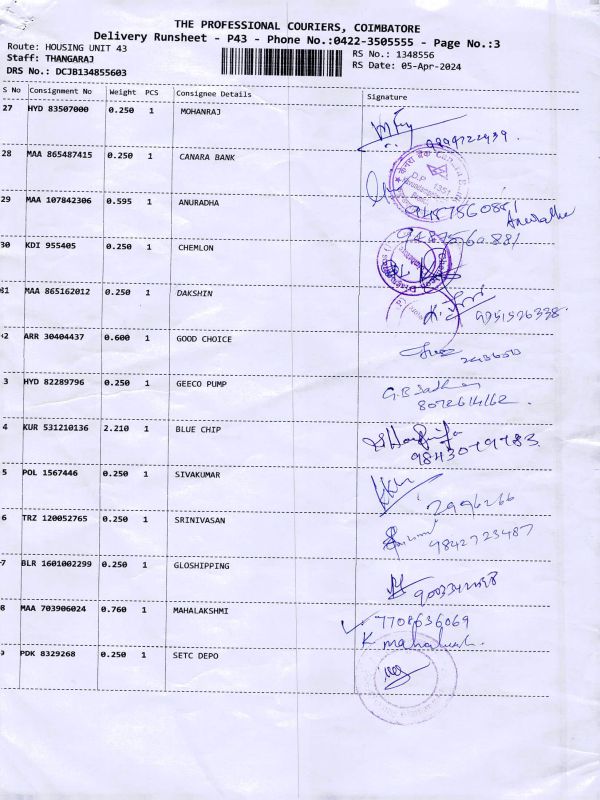 THE PROFESSIONAL COURIERS, COIMBATORE
Delivery Runsheet - P43 - Phone No.:0422-3505555 - Page No.:3
Route: HOUSING UNIT 43 RS No.: 1348556
Staff: THANGARAJ RS Date: 05-Apr-2024
DRS No.: DCJB134855603
S No Consignment No Weight PCS Consignee Details Signature
27 HYD 83507000 0.250 1 MOHANRAJ
28 MAA 865487415 0.250 1 CANARA BANK
D.P. 1351
29 MAA 107842306 0.595 1 ANURADHA
9487560881 Anuradha
30 KDI 955405 0.250 1 CHEMLON
9487560881
31 MAA 865162012 0.250 1 DAKSHIN
9751526338
2 ARR 30404437 0.600 1 GOOD CHOICE
3 HYD 82289796 0.250 1 GEECO PUMP
8072614162
4 KUR 531210136 2.210 1 BLUE CHIP
9843079783
5 POL 1567446 0.250 1 SIVAKUMAR
2996266
6 TRZ 120052765 0.250 1 SRINIVASAN
9842723487
7 BLR 1601002299 0.250 1 GLOSHIPPING
8 MAA 703906024 0.760 1 MAHALAKSHMI
7708636069
K. mahalash.
9 PDK 8329268 0.250 1 SETC DEPO